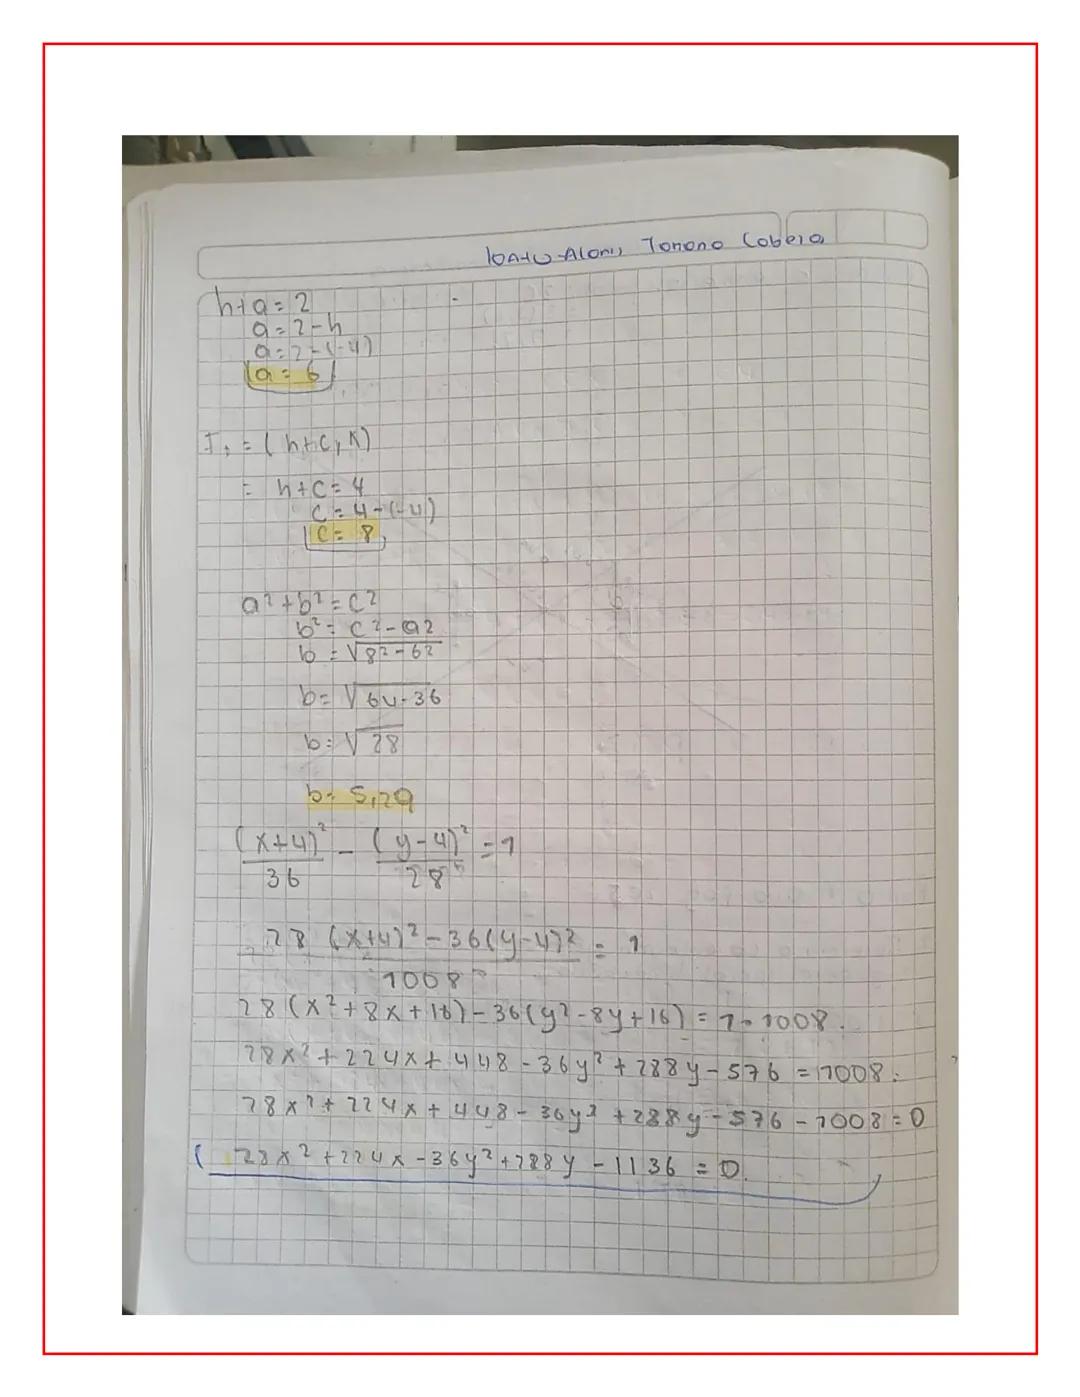 h+a=2
a=2-h
a=2-(-4)
a=6
F₁=(h+c, K)
= h+c=4
c=4-(-4)
c=8
a²+b²=c²
b²=c²-a²
b=√8²-6²
b=√64-36
b=√28
b=5,29
(x+4)²/36 - (y-4)²/28=1
28(x+4)²-36(y-4)²/1008=1
28(x²+8x+16)-36(y²-8y+16)=1·1008.
28x²+224x+448-36y²+288y-576=1008.
28x²+224x+448-36y²+288y-576-1008=0
28x²+224x-36y²+288y-1136=0.